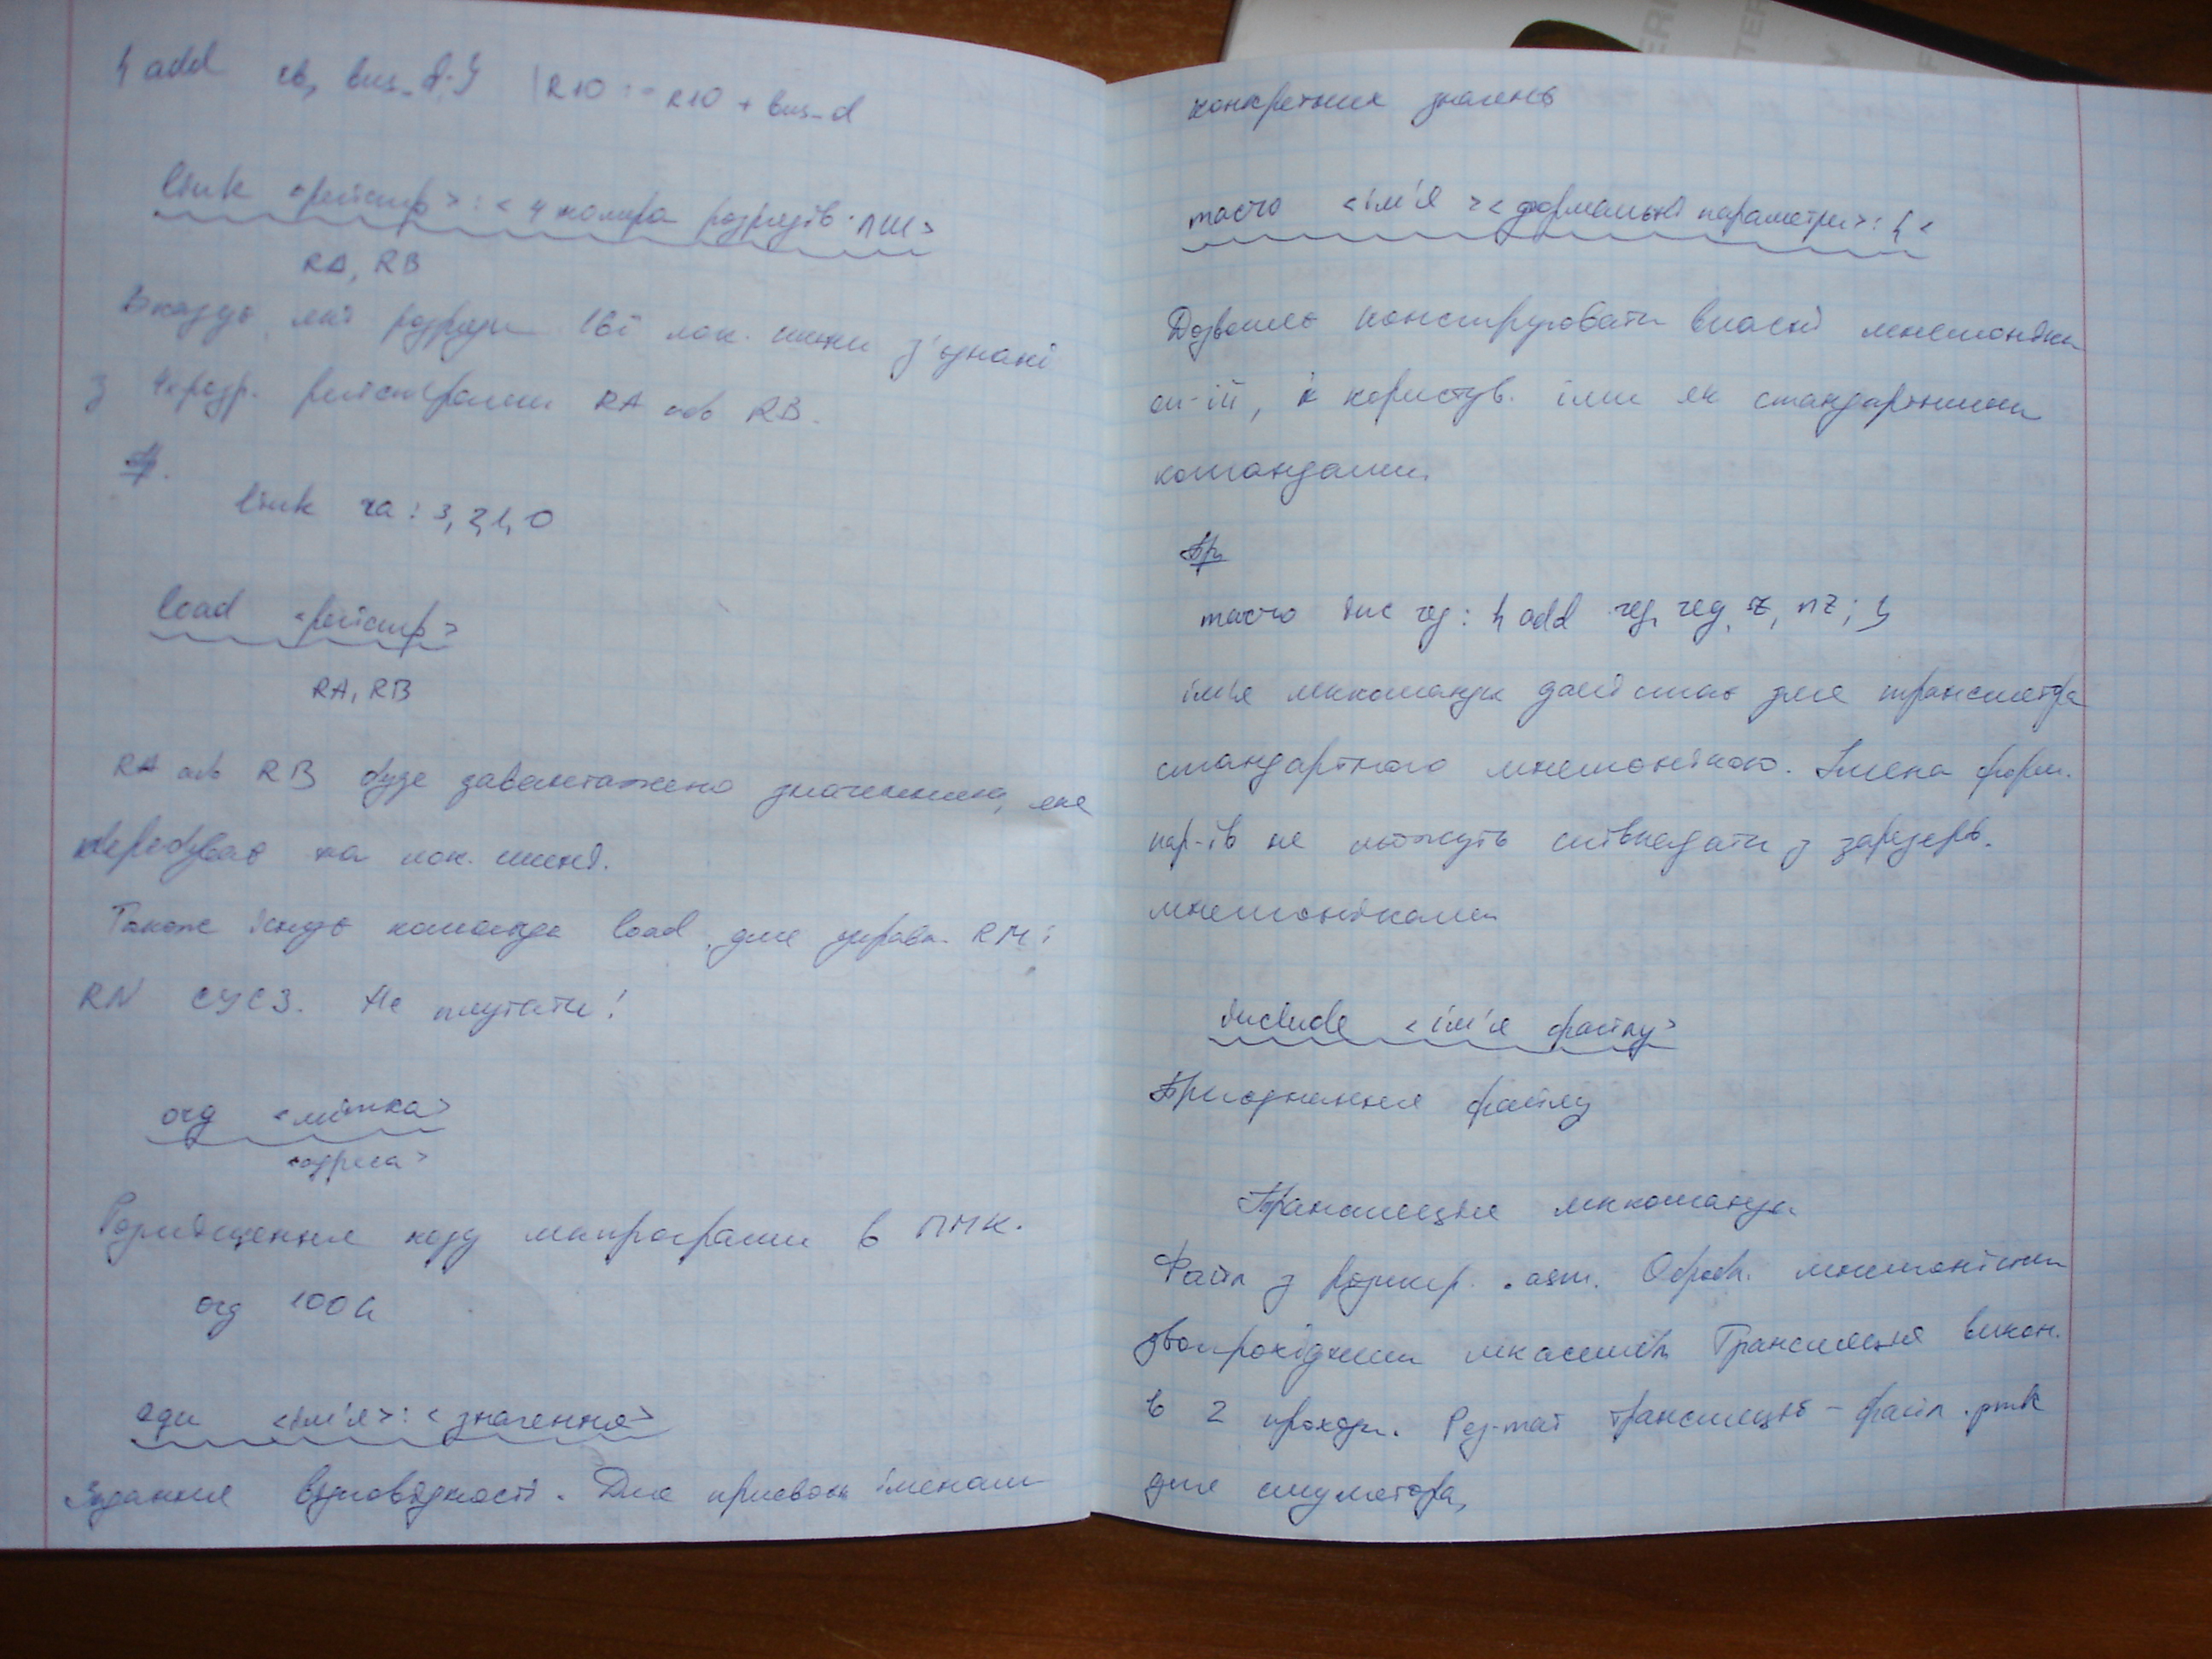 { add rb, bus_d;} | R10 := R10 + bus_d
link <регістр> : < 4 номера розрядів ЛШ>
RA, RB
Вказує які розряди 16ї лок. шини з'єднані
з 4х розр. регістрами RA або RB.
Пр.
link ra : 3, 2, 1, 0
load <регістр>
RA, RB
RA або RB буде завантажено значенням, яке
перебуває на лок. шині.
Також існує команда load для управл. RM і
RN СУСЗ. Не плутати!
org <мітка>
<адреса>
Розміщення коду мкпрограми в ПМК.
org 100h
equ <ім'я> : < значення>
Задання відповідності. Для присвоєн іменам
конкретних значень
macro <ім'я > < формальні параметри> : { <
Дозволяє конструювати власні мнемоніки
оп-ій, і користув. ними як стандартними
командами.
Пр.
macro inc reg : { add reg, reg, z, nz ; }
ім'я мккоманди далі стає для транслятора
стандартною мнемонікою. Імена форм.
пар-ів не можуть співпадати з зарезерв.
мнемоніками
include <ім'я файлу>
Приєднання файлу
Трансляція мккоманди
Файл з розшир. .asm. Оброб. мнемоніки
двопрохідним мкасемблі Трансляція викон.
в 2 проходи. Рез-тат трансляції - файл .pmk
для емулятора,